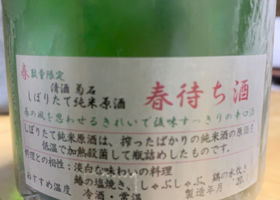 春 数量限定
清酒 菊石
しぼりたて純米原酒
春待ち酒
春の風を思わせるきれいで後味すっきりの辛口酒
しぼりたて純米原酒は、搾ったばかりの純米酒の原酒を
低温で加熱殺菌して瓶詰めしたものです。
料理との相性:淡白な味わいの料理
鰆の塩焼き、しゃぶしゃぶ、鶏の水炊き
おすすめ温度 冷酒・常温
製造年月